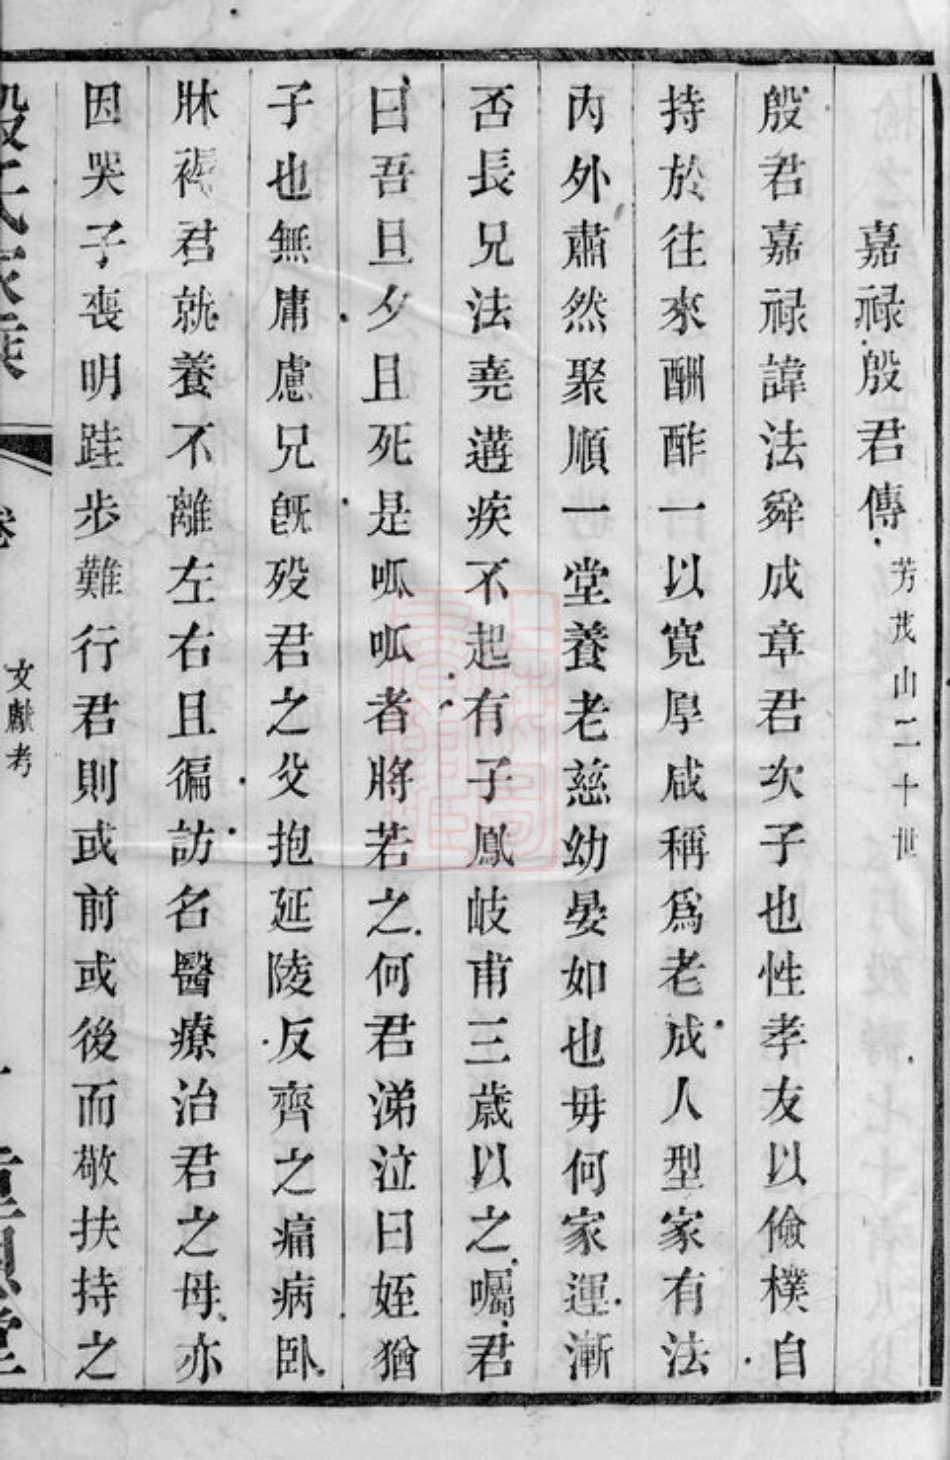 嘉祿殷君傳 芳茂山二十世
殷君嘉祿諱法舜成章君次子也性孝友以儉樸自
持於往來酬酢一以寬厚咸稱爲老成人型家有法
內外肅然聚順一堂養老慈幼晏如也毋何家運漸
否長兄法堯遘疾不起有子鳳岐甫三歲以之囑君
曰吾旦夕且死是呱呱者將若之何君涕泣曰姪猶
子也無庸慮兄旣歿君之父抱延陵反齊之痛病臥
牀褥君就養不離左右且徧訪名醫療治君之母亦
因哭子喪明跬步難行君則或前或後而敬扶持之
殷氏家乘
卷
文獻考